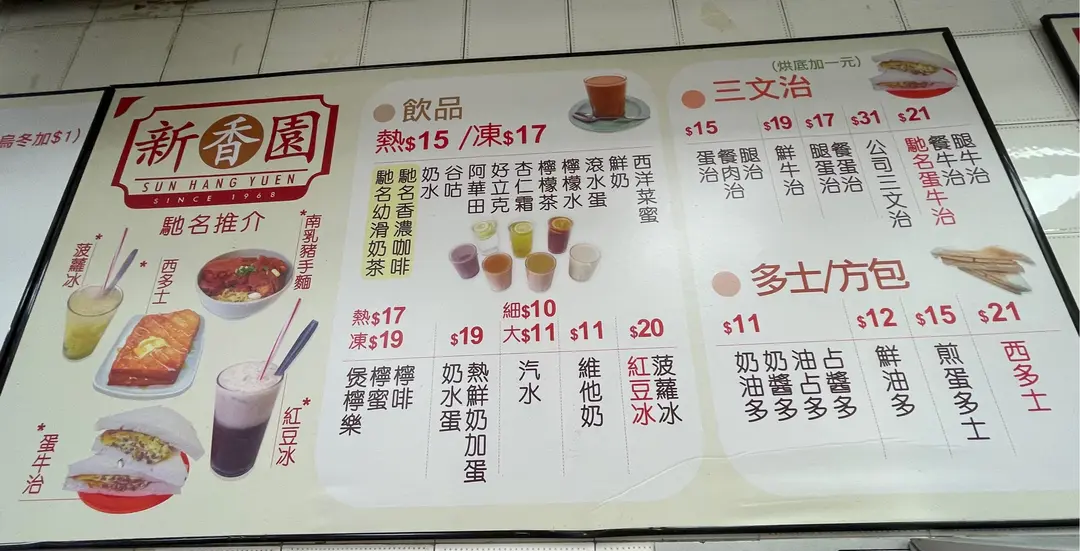 烏冬加$1)
新香園
SUN HANG YUEN
SINCE 1968
馳名推介
*菠蘿冰
*西多士
*南乳豬手麵
*紅豆冰
*蛋牛治
飲品
熱$15 /凍$17
西洋菜蜜
鮮奶
滾水蛋
檸檬水
檸檬茶
杏仁霜
好立克
阿華田
谷咕
奶水
馳名香濃咖啡
馳名幼滑奶茶
熱$17
凍$19
檸啡
檸蜜
煲檸樂
$19
熱鮮奶加蛋
奶水蛋
細$10
大$11
汽水
$11
維他奶
$20
菠蘿冰
紅豆冰
(烘底加一元)
三文治
$15
腿治
餐肉治
蛋治
$19
鮮牛治
$17
餐蛋治
腿蛋治
$31
公司三文治
$21
腿牛治
餐牛治
馳名蛋牛治
多士/方包
$11
占醬多
油占多
奶醬多
奶油多
$12
鮮油多
$15
煎蛋多士
$21
西多士